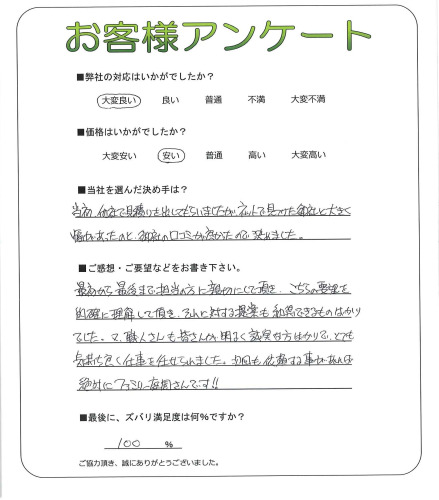 お客様アンケート
■弊社の対応はいかがでしたか？
大変良い 良い 普通 不満 大変不満
■価格はいかがでしたか？
大変安い 安い 普通 高い 大変高い
■当社を選んだ決め手は？
当初、他社で見積りを出してもらいましたが、ネットで見つけた御社と大きく
幅があったのと、御社の口コミが良かったので決めました。
■ご感想・ご要望などをお書き下さい。
最初から最後まで担当の方に親切にして頂き、こちらの要望を
的確に理解して頂き、それに対する提案も納得できるものばかり
でした。又、職人さんも皆さんが明るく誠実な方ばかりで、とても
気持ち良く仕事を任せられました。次回も依頼する事があれば
絶対にファミリー
さんです!!
■最後に、ズバリ満足度は何％ですか？
100 ％
ご協力頂き、誠にありがとうございました。